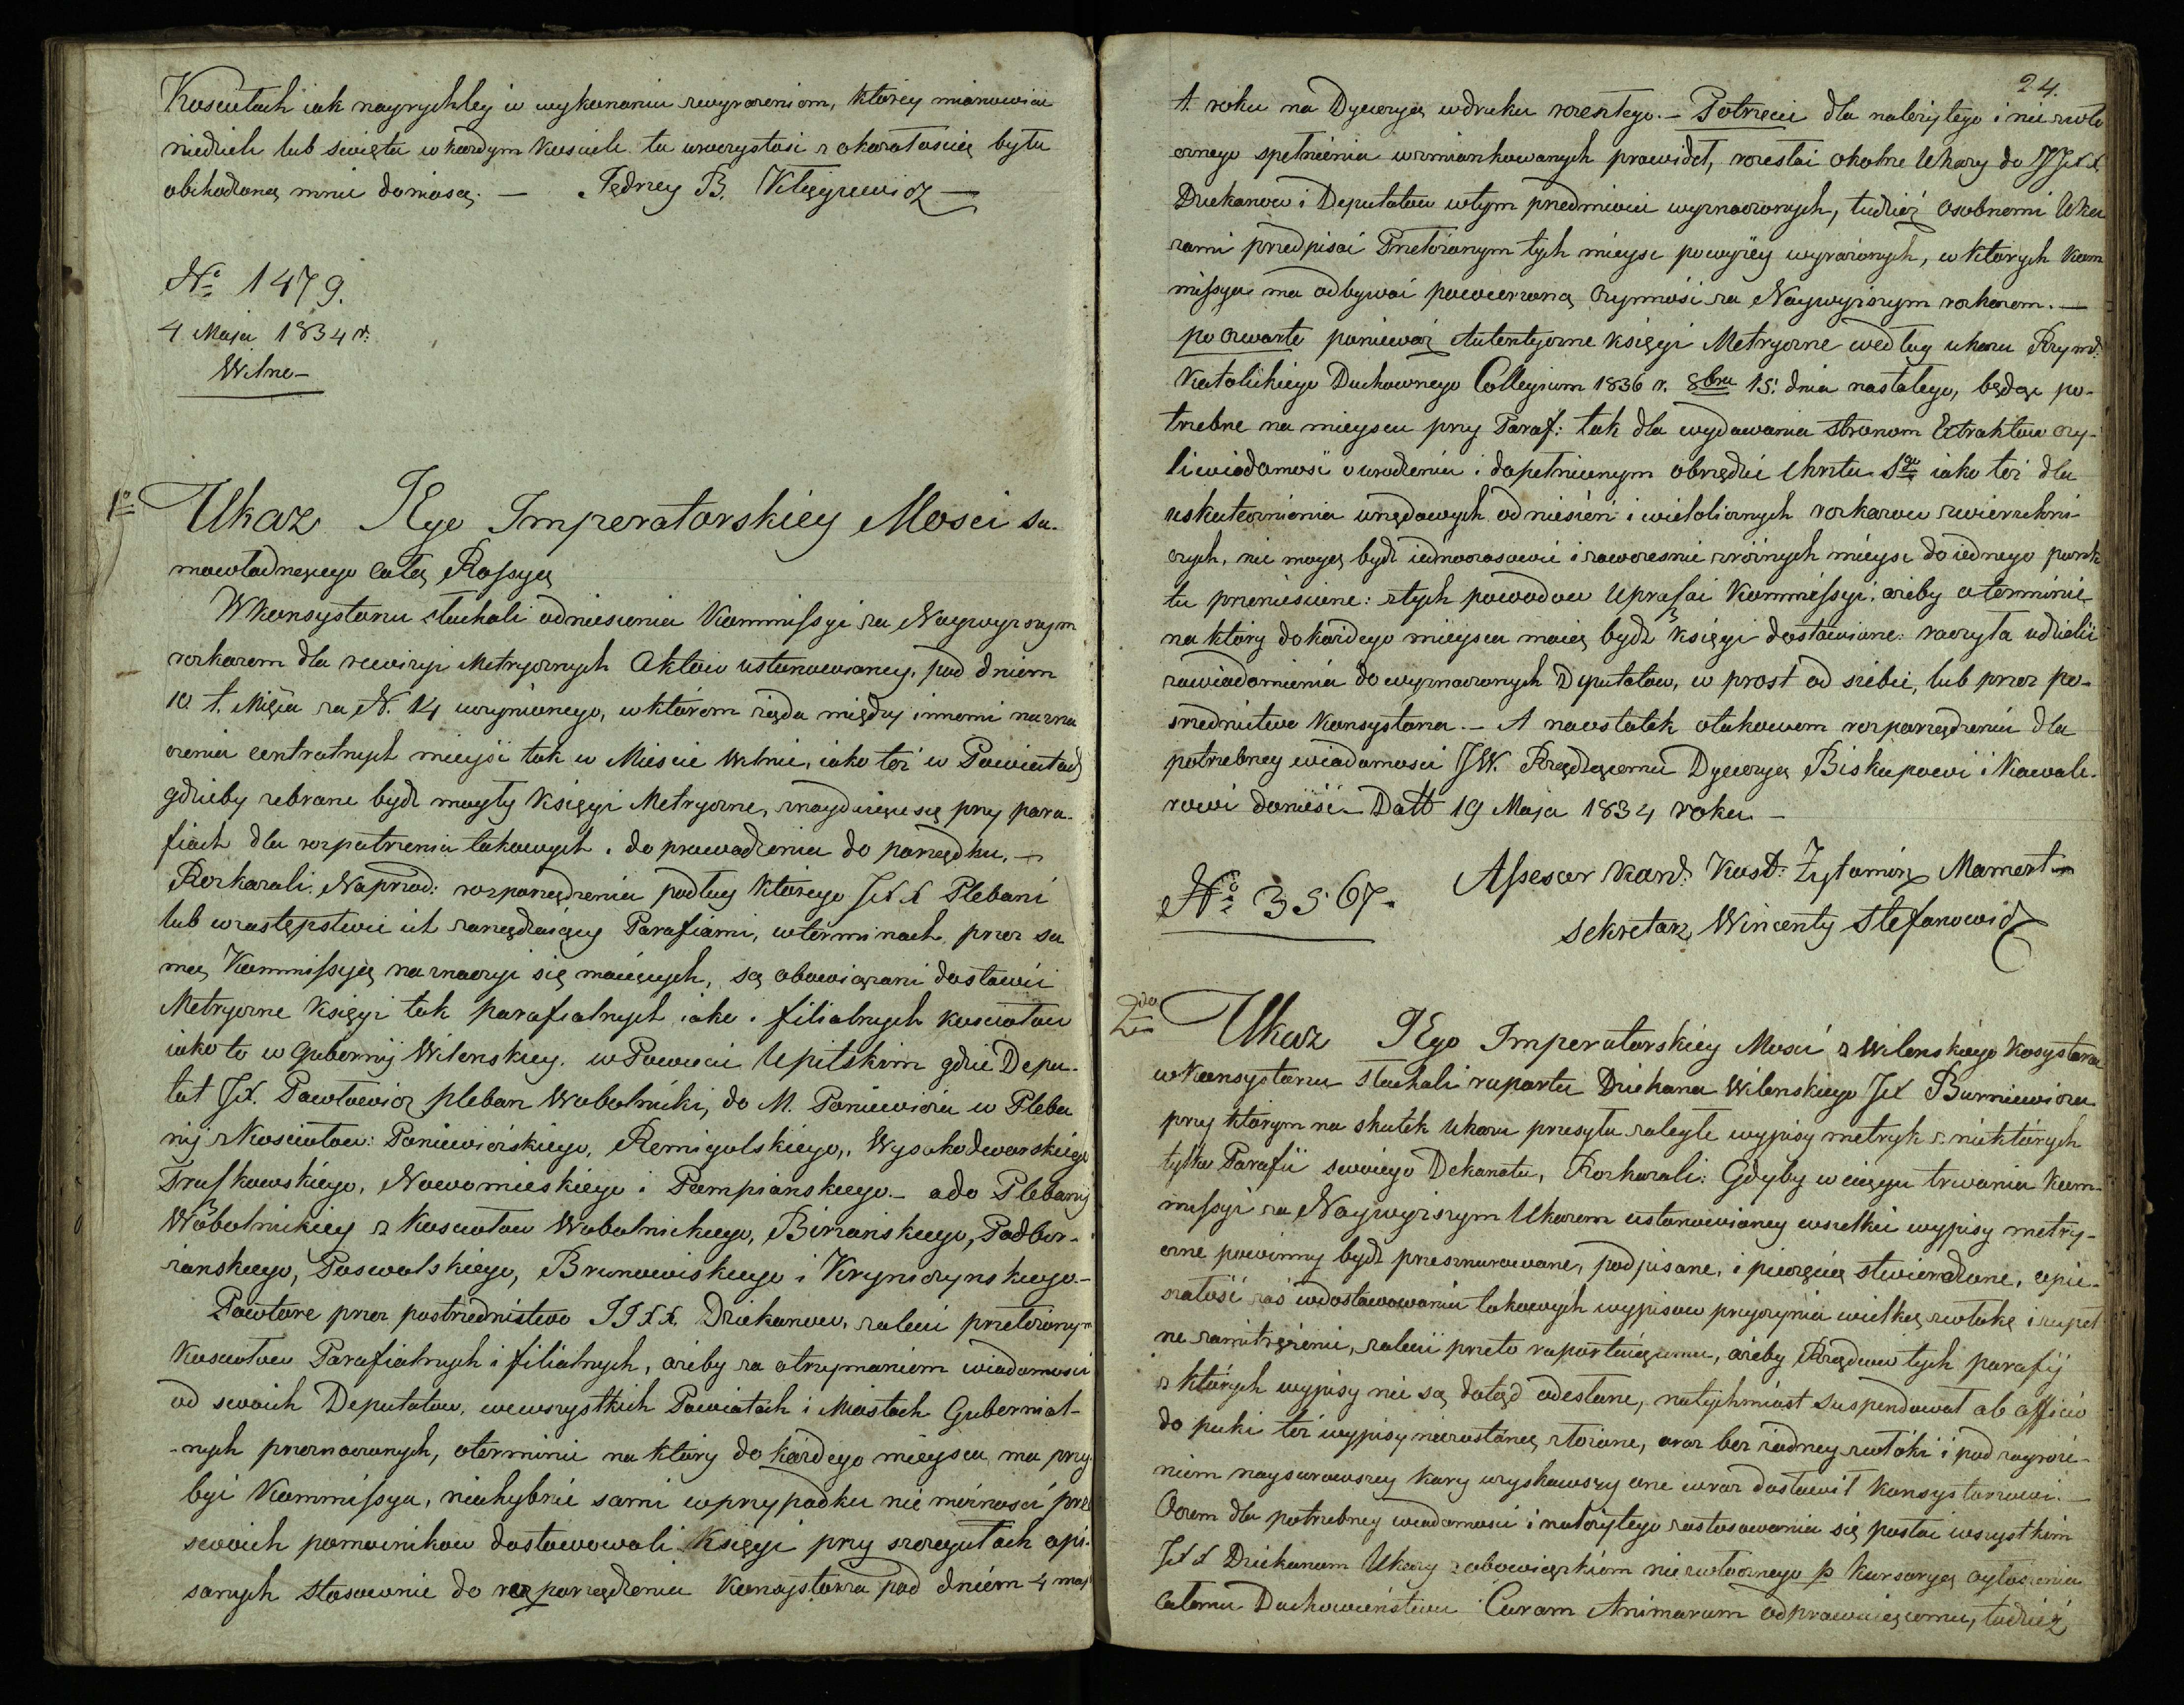 Kosciołach iak nayrychley i w wykonaniu zwyrażeniem, ktorey mianowicie
niedzieli lub swięta w każdym Kosciele ta uroczystość z okazałoscią była
obchodzoną mnie doniosą. — Jędrzey B. Kłągiewicz —
No 1479.
4 Maja 1834 r.
Wilno —
1o Ukaz Jego Imperatorskiey Mosci sa-
mowładnącego całą Rossyą
W Konsystorzu słuchali odniesienia Kommissyi za Naywyższym
rozkazem dla rewizyi Metrycznych Aktow ustanowioney, pod dniem
10 t. Mieca za N. 14 uczynionego, w którem żąda między innemi nazna
czenia centralnych mieysc tak w Miescie Wilnie, iako też w Powiatach
gdzieby zebrane bydź mogły Księgi Metryczne, znayduiące się przy para-
fiach dla rozpatrzenia takowych i doprowadzenia do porządku. —
Rozkazali: Naprzod: rozporządzenia podług którego JXX Plebani
lub w zastępstwie ich zarządzaiący Parafiami, w terminach przez sa
mą Kommissyią naznaczyć się maiących, są obowiązani dostawić
Metryczne Księgi tak parafialnych iako i filialnych kosciołow
iako to w Gubernij Wilenskiey. w Powiecie Upitskim gdzie Depu-
tat JX. Pawłowicz pleban Wobolnicki, do M. Poniewieża w Pleba
nij z Kosciołow: Poniewieżskiego, Remigolskiego, Wysokodworskiego
Truskowskiego, Nowomieskiego i Pompianskiego. — a do Plebanij
Wobolnickiey z Kosciołow Wobolnickiego, Birżanskiego, Podbir-
żanskiego, Poswolskiego, Brunowiskiego i Kryniczynskiego. —
Powtore przez postrzednictwo JJXX. Dziekanow, zalecić przełożonym
Kosciołow Parafialnych i filialnych, ażeby za otrzymaniem wiadomosci
od swoich Deputatow, we wszystkich Powiatach i Miastach Gubernial-
-nych przeznaczonych, o terminie na który do każdego mieysca, ma przy-
być Kommissya, niechybnie sami w przypadku niemożnosci przez
swoich pomocnikow dostawowali Księgi przy szczegułach opi-
sanych stosownie do rozporządzenia Konsystorza pod dniem 4 maj
24.
t. roku na Dyecezyą w druku rozesłtego. — Potrzecie dla należytego i nie zwło
cznego spełnienia wzmiankowanych prawideł, rozesłać okolne Ukazy do JJXX
Dziekanow i Deputatow w tym przedmiocie wyznaczonych, tudzież osobnemi Uka
zami przedpisać Przełożonym tych mieysc powyżey wyrażonych, w ktorych Kom
missya ma odbywać powierzoną Czynność za Naywyższym rozkazem. —
po czwarte ponieważ Autentyczne Księgi Metryczne według ukazu Rzymo.
Katolickiego Duchownego Collegium 1836 r. 8bra 15. dnia nastałego, będąc po-
trzebne na mieyscu przy Paraf: tak dla wydawania stronom Extraktow czy-
li wiadomości o urodzeniu i dopełnionym obrzędzie Chrztu Sgo iako też dla
uskutecznienia urzędowych odniesien i wielolicznych rozkazow zwierzchni-
czych, nie mogą bydź iednoczasowie i zawczesnie z różnych mieysc do iednego punk
tu przeniesione: z tych powodow Uprasać Kommissyi, ażeby o terminie
na który do każdego mieysca maią bydź Księgi dostawione: raczyła udzielić
zawiadomienia do wyznaczonych Deputatow, w prost od siebie, lub przez po-
srednictwo Konsystorza. — A naostatek o takowem rozporządzeniu dla
potrzebney wiadomosci JW. Rządzącemu Dyecezyą Biskupowi i Kawale-
rowi donieść. — Datt 19 Maja 1834 roku —
No 3567. Assesor Kan. Kast. Żytomirz Mamert
Sekretarz Wincenty Stefanowicz
2do Ukaz Jego Imperatorskiey Mosci z Wilenskiego Kosystorza
w Konsystorzu słuchali raportu Dziekana Wilenskiego JX Burniewicza
przy którym na skutek Ukazu przesyła zaległe wypisy metryk z niektórych
tylko Parafii swoiego Dekanatu, Rozkazali: Gdyby w ciągu trwania Kom-
missyi za Naywyższym Ukazem ustanowioney wszelkie wypisy metry-
czne powinny bydź przesznurowane, podpisane, i pieczęcią stwierdzone, opie-
szałość zaś w dostawowaniu takowych wypisow przyczynia wielką zwłokę i zupeł
ne zamitrężenie, zalecić przeto raportuiącemu, ażeby Rządcow tych parafij
z których wypisy nie są dotąd odesłane, natychmiast suspendował ab officio
do puki też wypisy niezostaną złożone, oraz bez żadney zwłóki i pod zagroże-
niem naysurowszey kary wyszkawszy one wraz dostawił Konsystorzowi. —
Oczem dla potrzebney wiadomości i należytego zastosowania się posłać wszystkim
JXX Dziekanom Ukazy z obowiązkiem niezwłocznego p. Kursoryą ogłoszenia
całemu Duchowieństwu Curam Animarum odprawuiącemu, tudzież